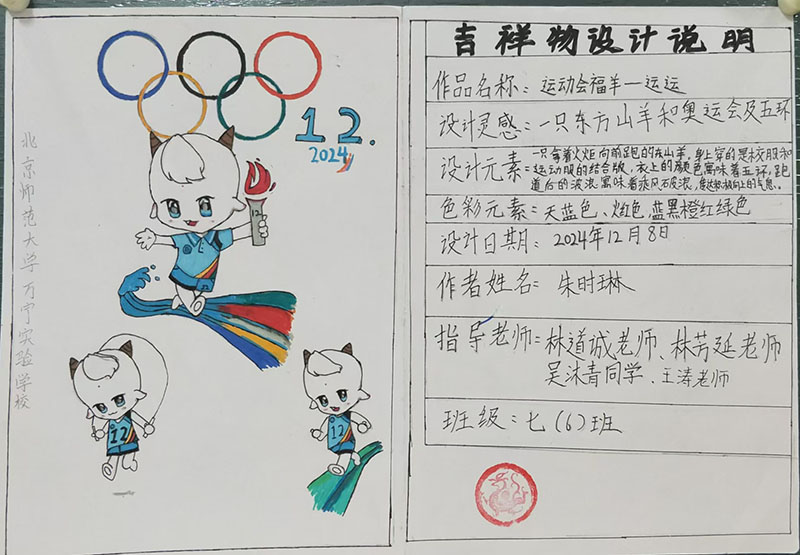 北京师范大学万宁实验学校
12.
2024
12
12
12
吉祥物设计说明
作品名称：运动会福羊—运运
设计灵感：一只东方山羊和奥运会及五环
设计元素=一只拿着火炬向前跑的东山羊。身上穿的是校服和
运动服的结合版，衣上的颜色寓味着五环，跑
道后的波浪寓味着乘风破浪，
色彩元素=天蓝色、火红色 蓝黑橙红绿色
设计日期：2024年12月8日
作者姓名：朱时琳
指导老师=林道诚老师、林芳延老师
吴沐青同学、王涛老师
班级：七（6）班